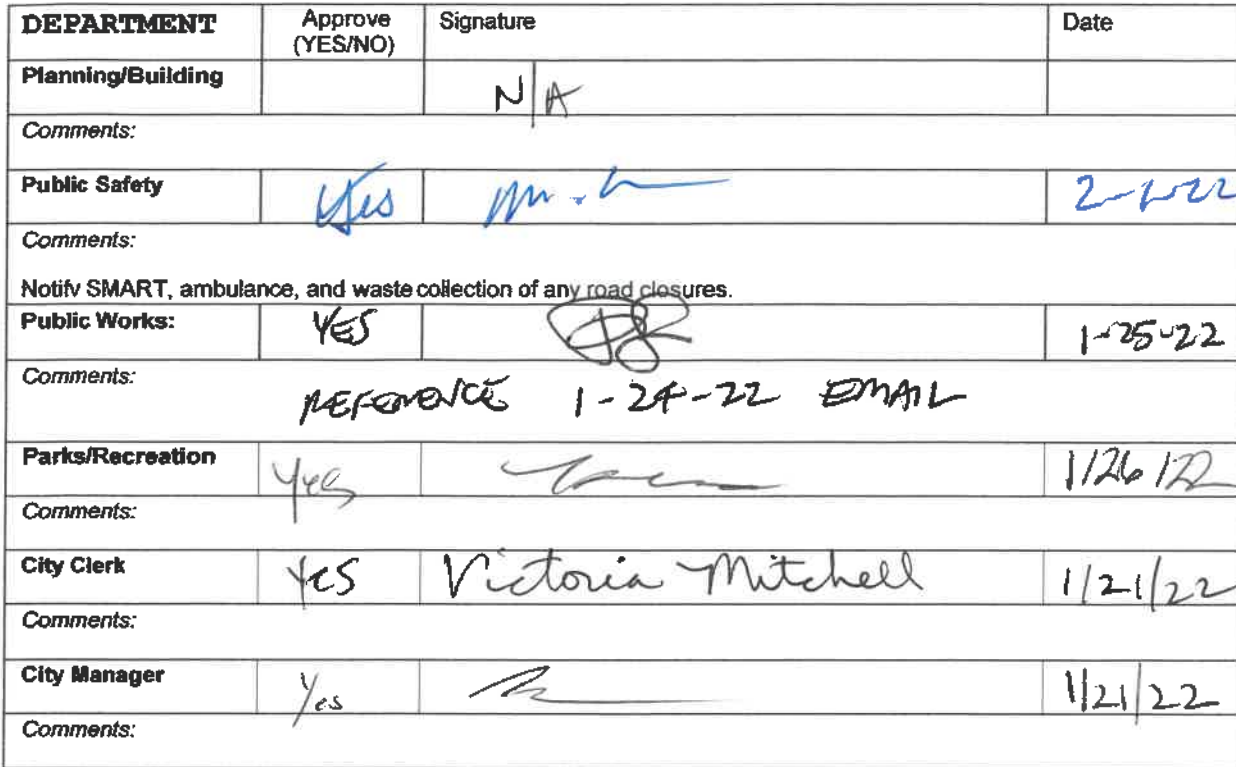 DEPARTMENT Approve (YES/NO) Signature Date
Planning/Building N/A
Comments:
Public Safety Yes 2-1-22
Comments:
Notify SMART, ambulance, and waste collection of any road closures.
Public Works: YES 1-25-22
Comments:
REFERENCE 1-24-22 EMAIL
Parks/Recreation Yes 1/26/22
Comments:
City Clerk Yes Victoria Mitchell 1/21/22
Comments:
City Manager Yes 1/21/22
Comments: